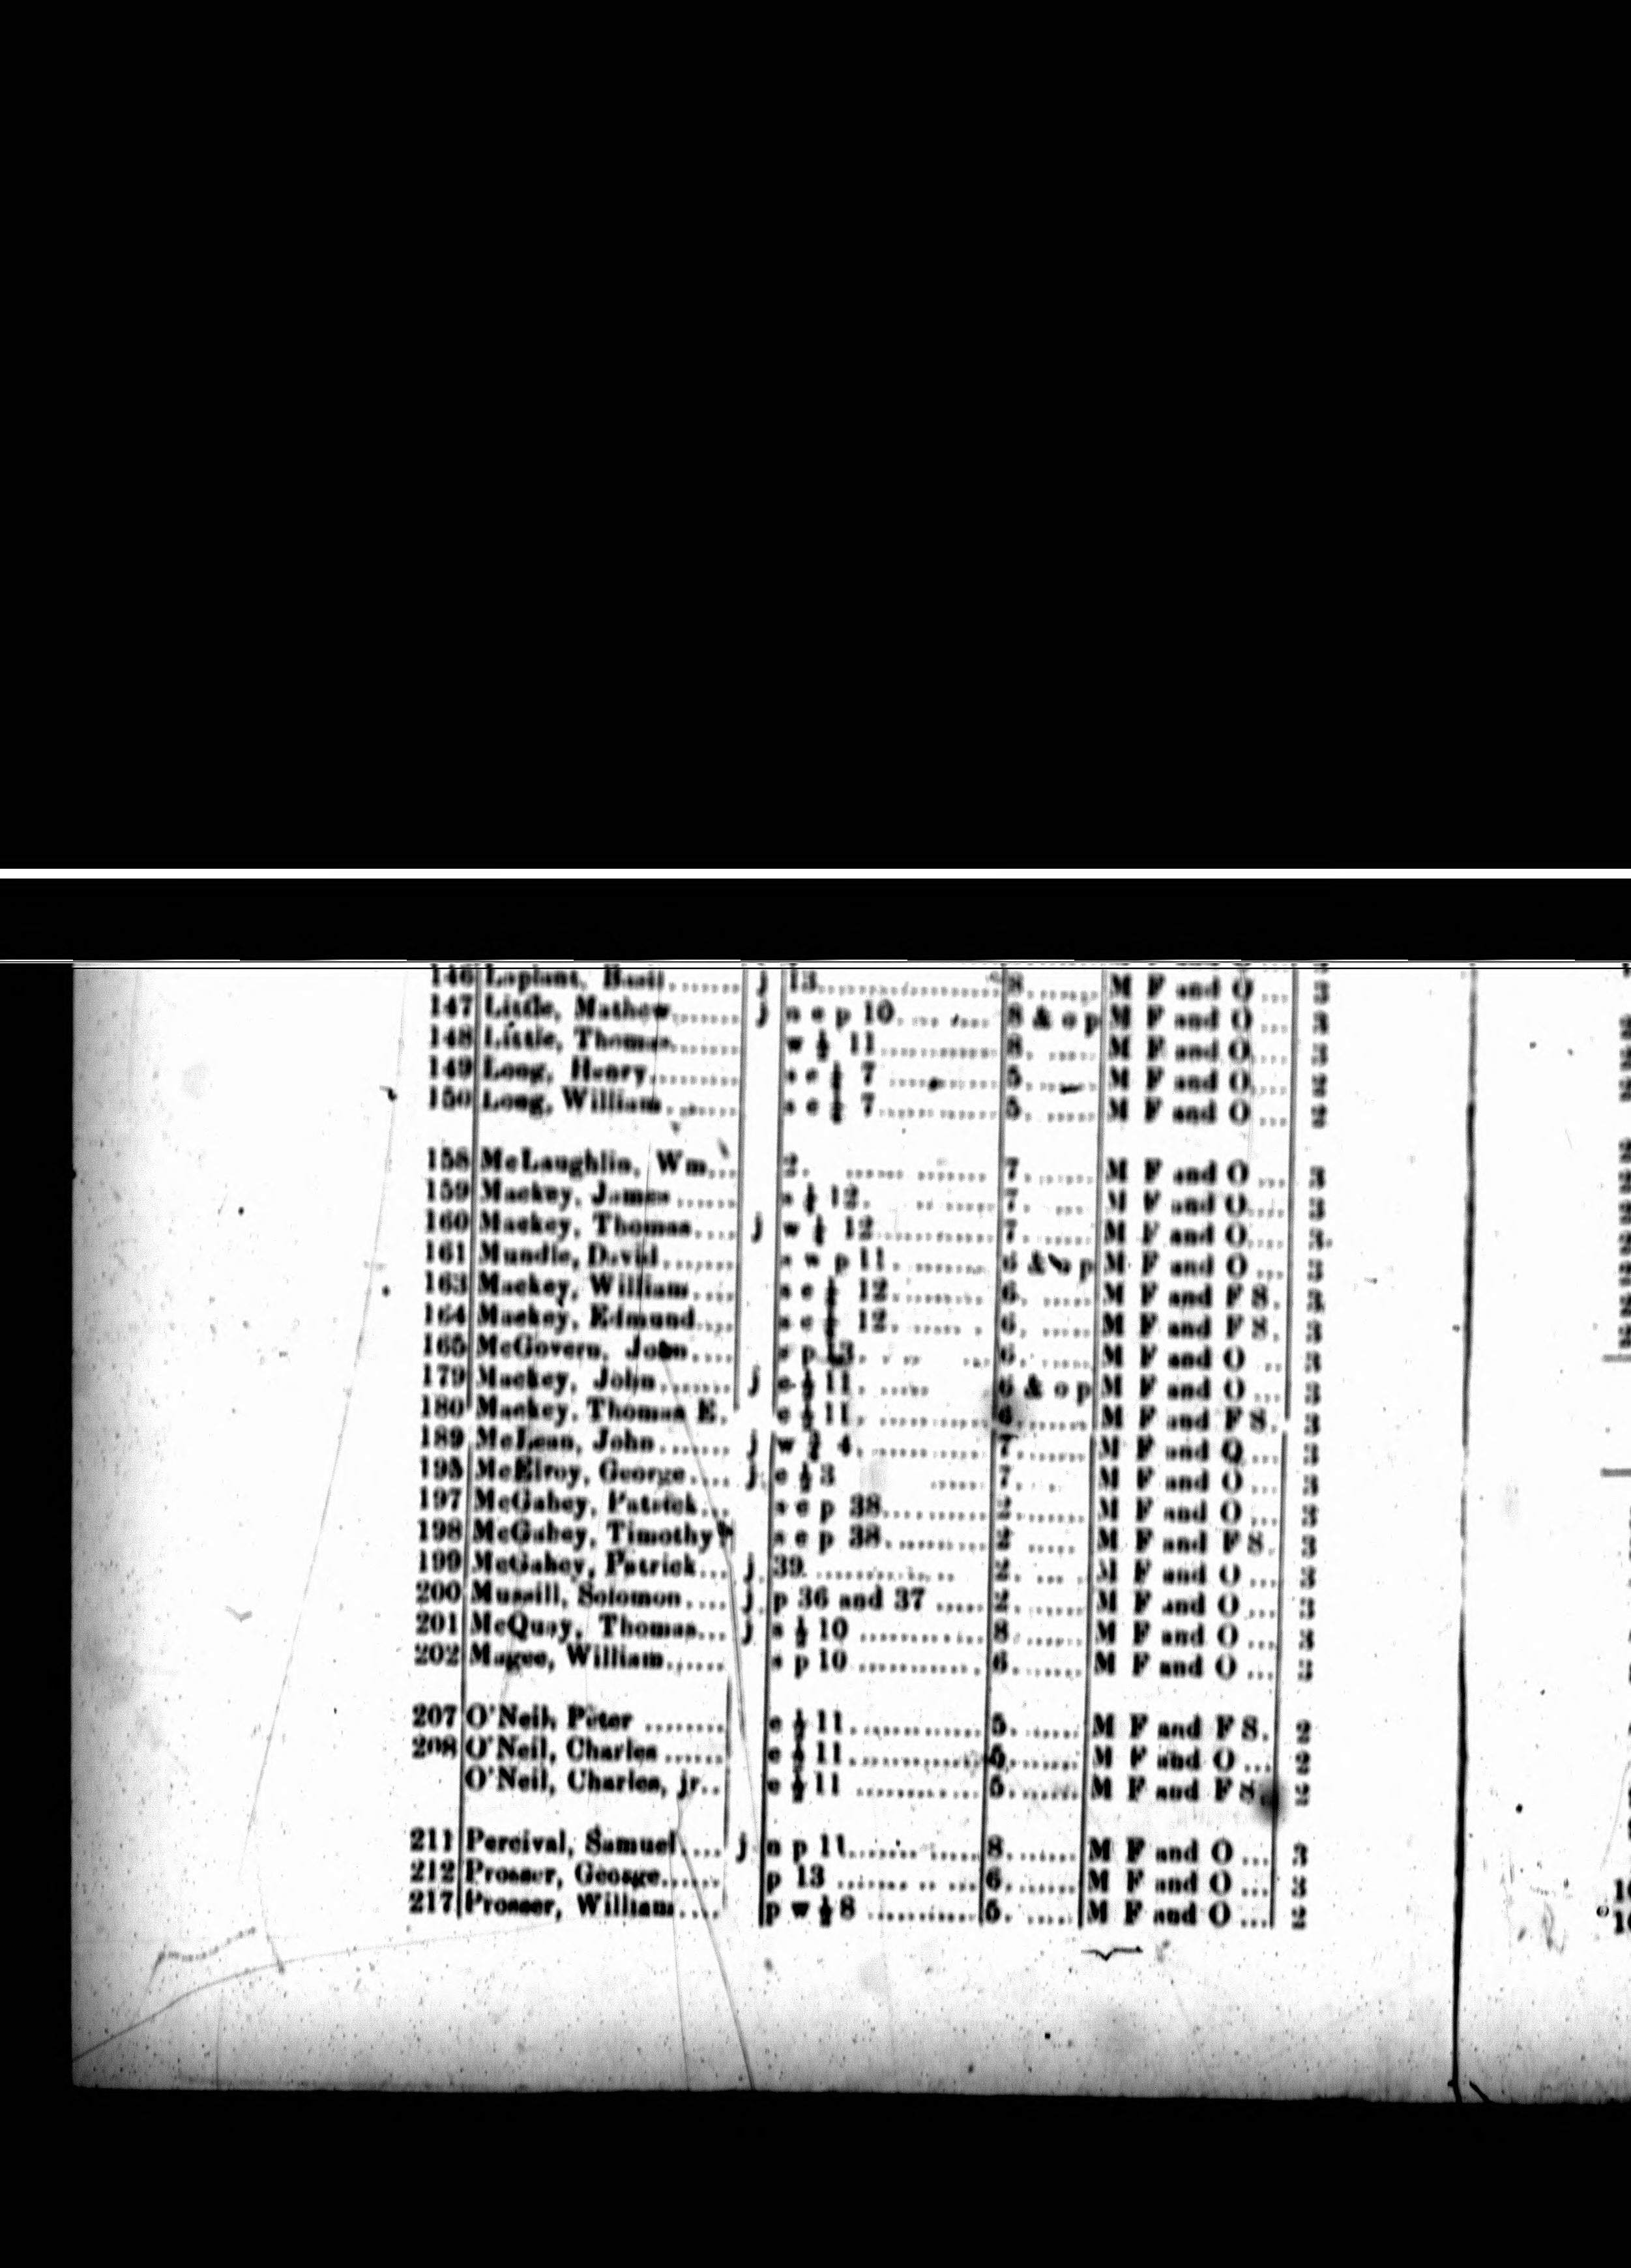 146 Laplant, Basil....... j 13..................... 8....... M F and O ... 3
147 Little, Mathew....... j n e p 10.... .... 8 & o p M F and O ... 3
148 Little, Thomas....... w ½ 11........... 8. ..... M F and O.... 3
149 Long, Henry.......... s e ¼ 7 .......... 5....... M F and O.... 2
150 Long, William........ s e ¼ 7........... 5. ..... M F and O ... 2
158 McLaughlin, Wm... 2. ...... ....... 7....... M F and O ... 3
159 Mackey, James ...... ½ 12. .. ..... 7. ... M F and O.... 3
160 Mackey, Thomas.... j w ½ 12........... 7. ..... M F and O.... 3
161 Mundle, David....... p 11. ....... 6 & o p M F and O ... 3
163 Mackey, William.... s e ¼ 12......... 6. ..... M F and F S. 3
164 Mackey, Edmund.... s e ¼ 12. ..... . 6. ..... M F and F S. 3
165 McGovern, John.... p 13. . .. ... 6. ..... M F and O .. 3
179 Mackey, John....... j e ½ 11. ..... 6 & o p M F and O ... 3
180 Mackey, Thomas E. e ½ 11. .......... 6....... M F and F S. 3
189 McLean, John....... j w ½ 4. .......... 7....... M F and O ... 3
195 McElroy, George.... j e ½ 3 ..... 7. . . M F and O ... 3
197 McGahey, Patrick... s e p 38......... 2....... M F and O ... 3
198 McGahey, Timothy s e p 38......... 2 ..... M F and F S. 3
199 McGahey, Patrick... j 39. ............. 2. ... . M F and O ... 3
200 Mussill, Solomon.... j p 36 and 37 ..... 2. ..... M F and O ... 3
201 McQuay, Thomas... j ½ 10 ............ 8 ...... M F and O ... 3
202 Magee, William...... p 10 ............ 6....... M F and O ... 3
207 O'Neil, Peter ........ e ½ 11............. 5. ..... M F and F S. 2
208 O'Neil, Charles ...... e ½ 11............. 5....... M F and O ... 2
O'Neil, Charles, jr.. e ½ 11 ............ 5....... M F and F S. 2
211 Percival, Samuel.... j n p 11....... ..... 8....... M F and O ... 3
212 Prosser, George...... p 13 ....... .. ... 6....... M F and O ... 3
217 Prosser, William.... p w ½ 8 ........... 5. ..... M F and O ... 2